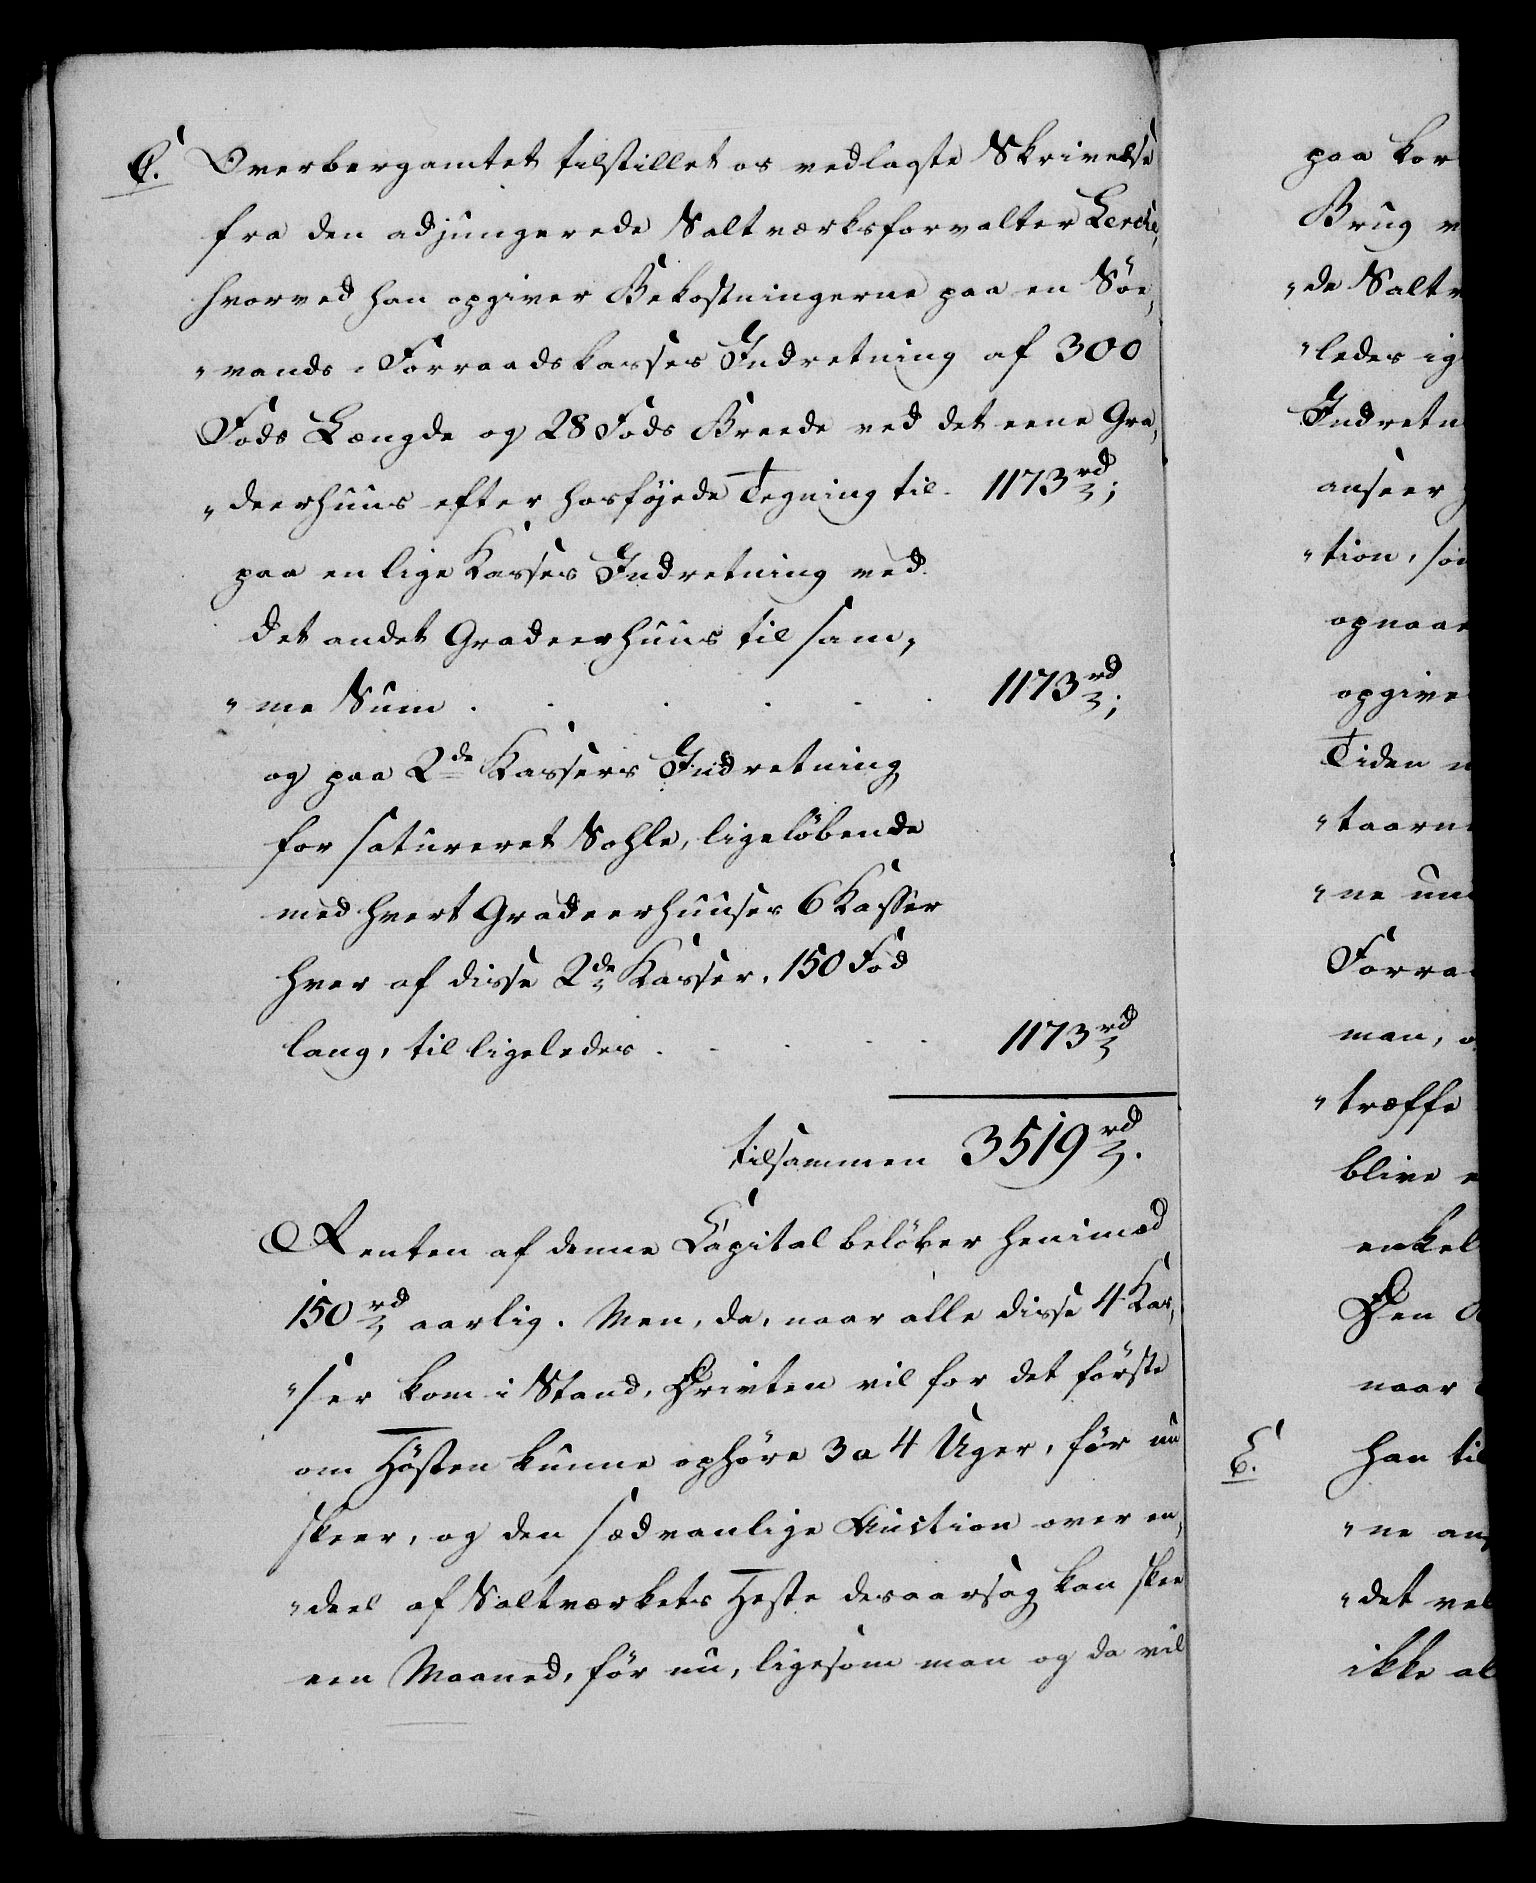 C. Overbergamtet tilstillet os vedlagte Skrivelse
fra den adjungerede Saltværksforvalter Lerche,
hvorved han opgiver Bekostningerne paa en Söe,
„vands-Forraadskasses Indretning af 300
Fods Længde og 28 Fods Breede ved det eene Gra,
„deerhuus efter hosföjede Tegning til. 1173 rd;
paa en lige Kasses Indretning ved
det andet Gradeerhuus til sam,
„me Sum . . . . . 1173 rd;
og paa 2de Kassers Indretning
for satureret Sohle, ligelöbende
med hvert Gradeerhuuses 6 Kasser
hver af disse 2de Kasser, 150 Fod
lang, til ligeledes . . . . . 1173 rd
tilsammen 3519 rd.
Renten af denne Capital belöber henimod
150 rd aarlig. Men, da, naar alle disse 4 Kas,
„ser kom i Stand, Driften vil for det förste
om Hösten kunne ophöre 3 a 4 Uger, för nu
skeer, og den sædvanlige Auction over en,
„deel af Saltværkets Heste desaarsag kan skee
een Maaned, för nu, ligesom man og da vil
paa kor
Brug v
„de Saltv
„ledes ig
Indretn
anseer
„tion, so
opnaae
opgive
Tiden
„taarn
„ne un
Forra
man,
„træffe
blive
enkel
Den
naar
E. han til
„ne an
„det vel
ikke al